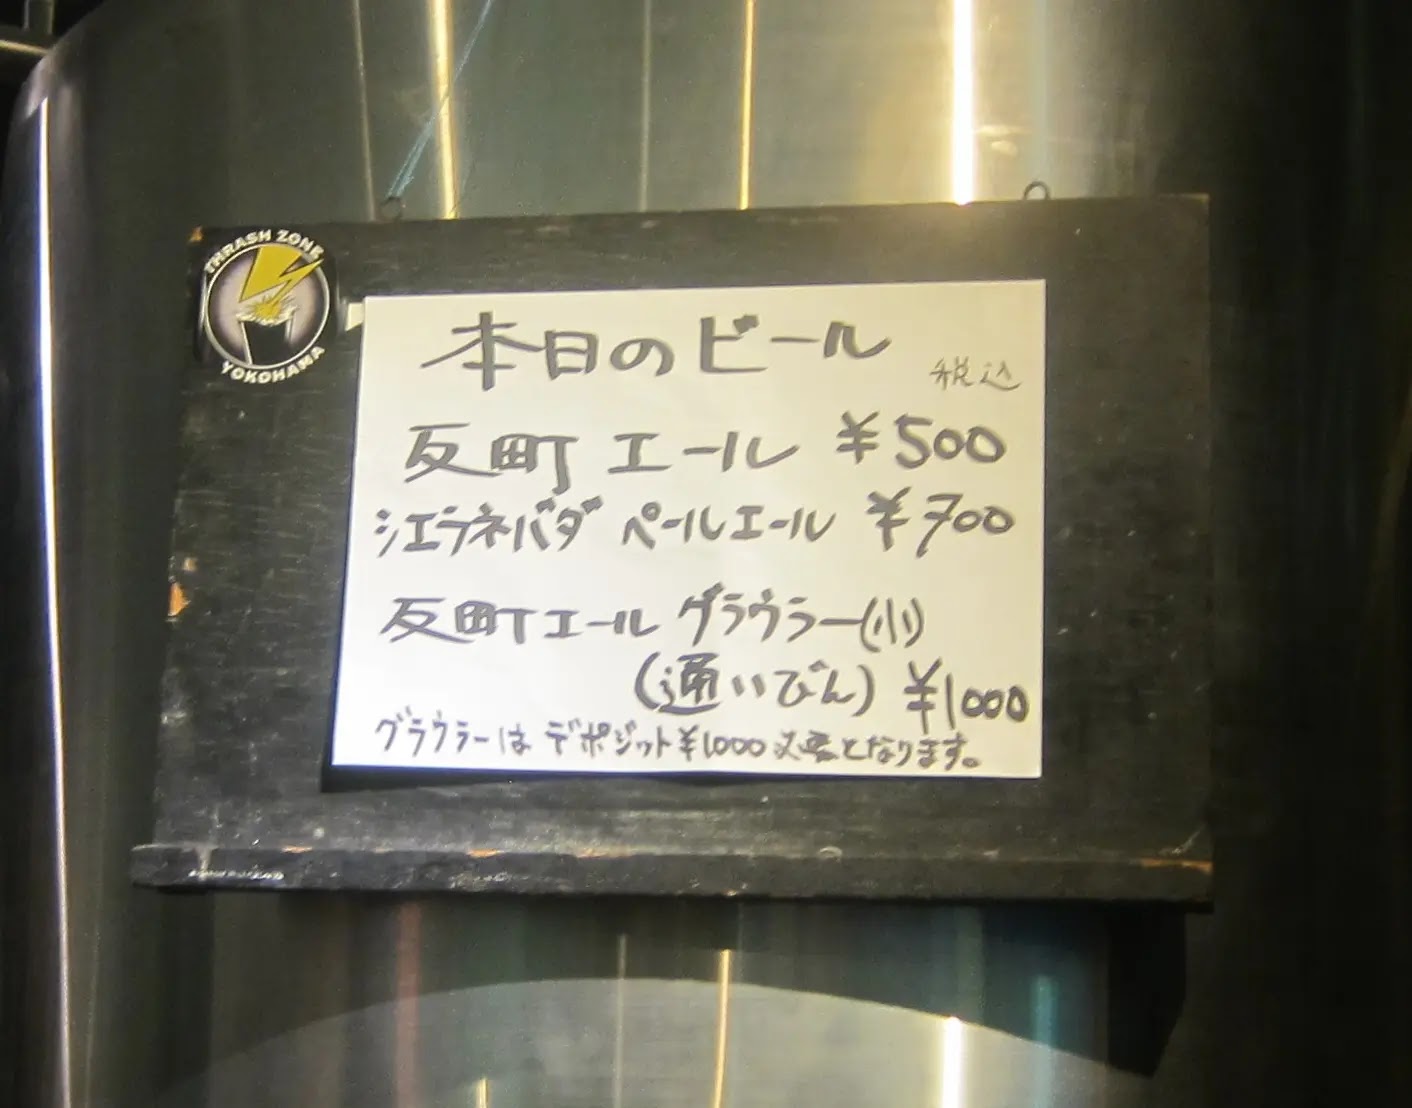 THRASH ZONE
YOKOHAMA
本日のビール
税込
反町エール ¥500
シエラネバダ ペールエール ¥700
反町エール グラウラー(小)
(通いびん) ¥1000
グラウラーは デポジット¥1000必要となります。